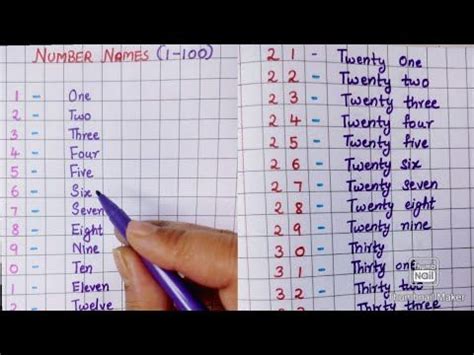 NUMBER NAMES (1-100)
1 - One
2 - Two
3 - Three
4 - Four
5 - Five
6 - Six
7 - Seven
8 - Eight
9 - Nine
0 - Ten
1 - Eleven
2 - Twelve
21 - Twenty One
22 - Twenty two
23 - Twenty three
24 - Twenty four
25 - Twenty five
26 - Twenty six
27 - Twenty seven
28 - Twenty eight
29 - Twenty nine
30 - Thirty
31 - Thirty one
32 - Thirty two
Thirty three
Nail
Thumbnail Maker